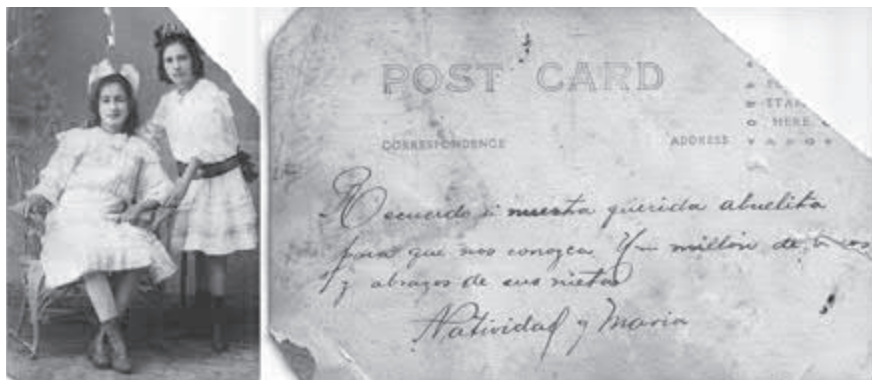 POST CARD
HERE
CORRESPONDENCE
ADDRESS
Recuerdo á nuestra querida abuelita
para que nos conozca Un millón de
y abrazos de sus nietas
Natividad y Maria